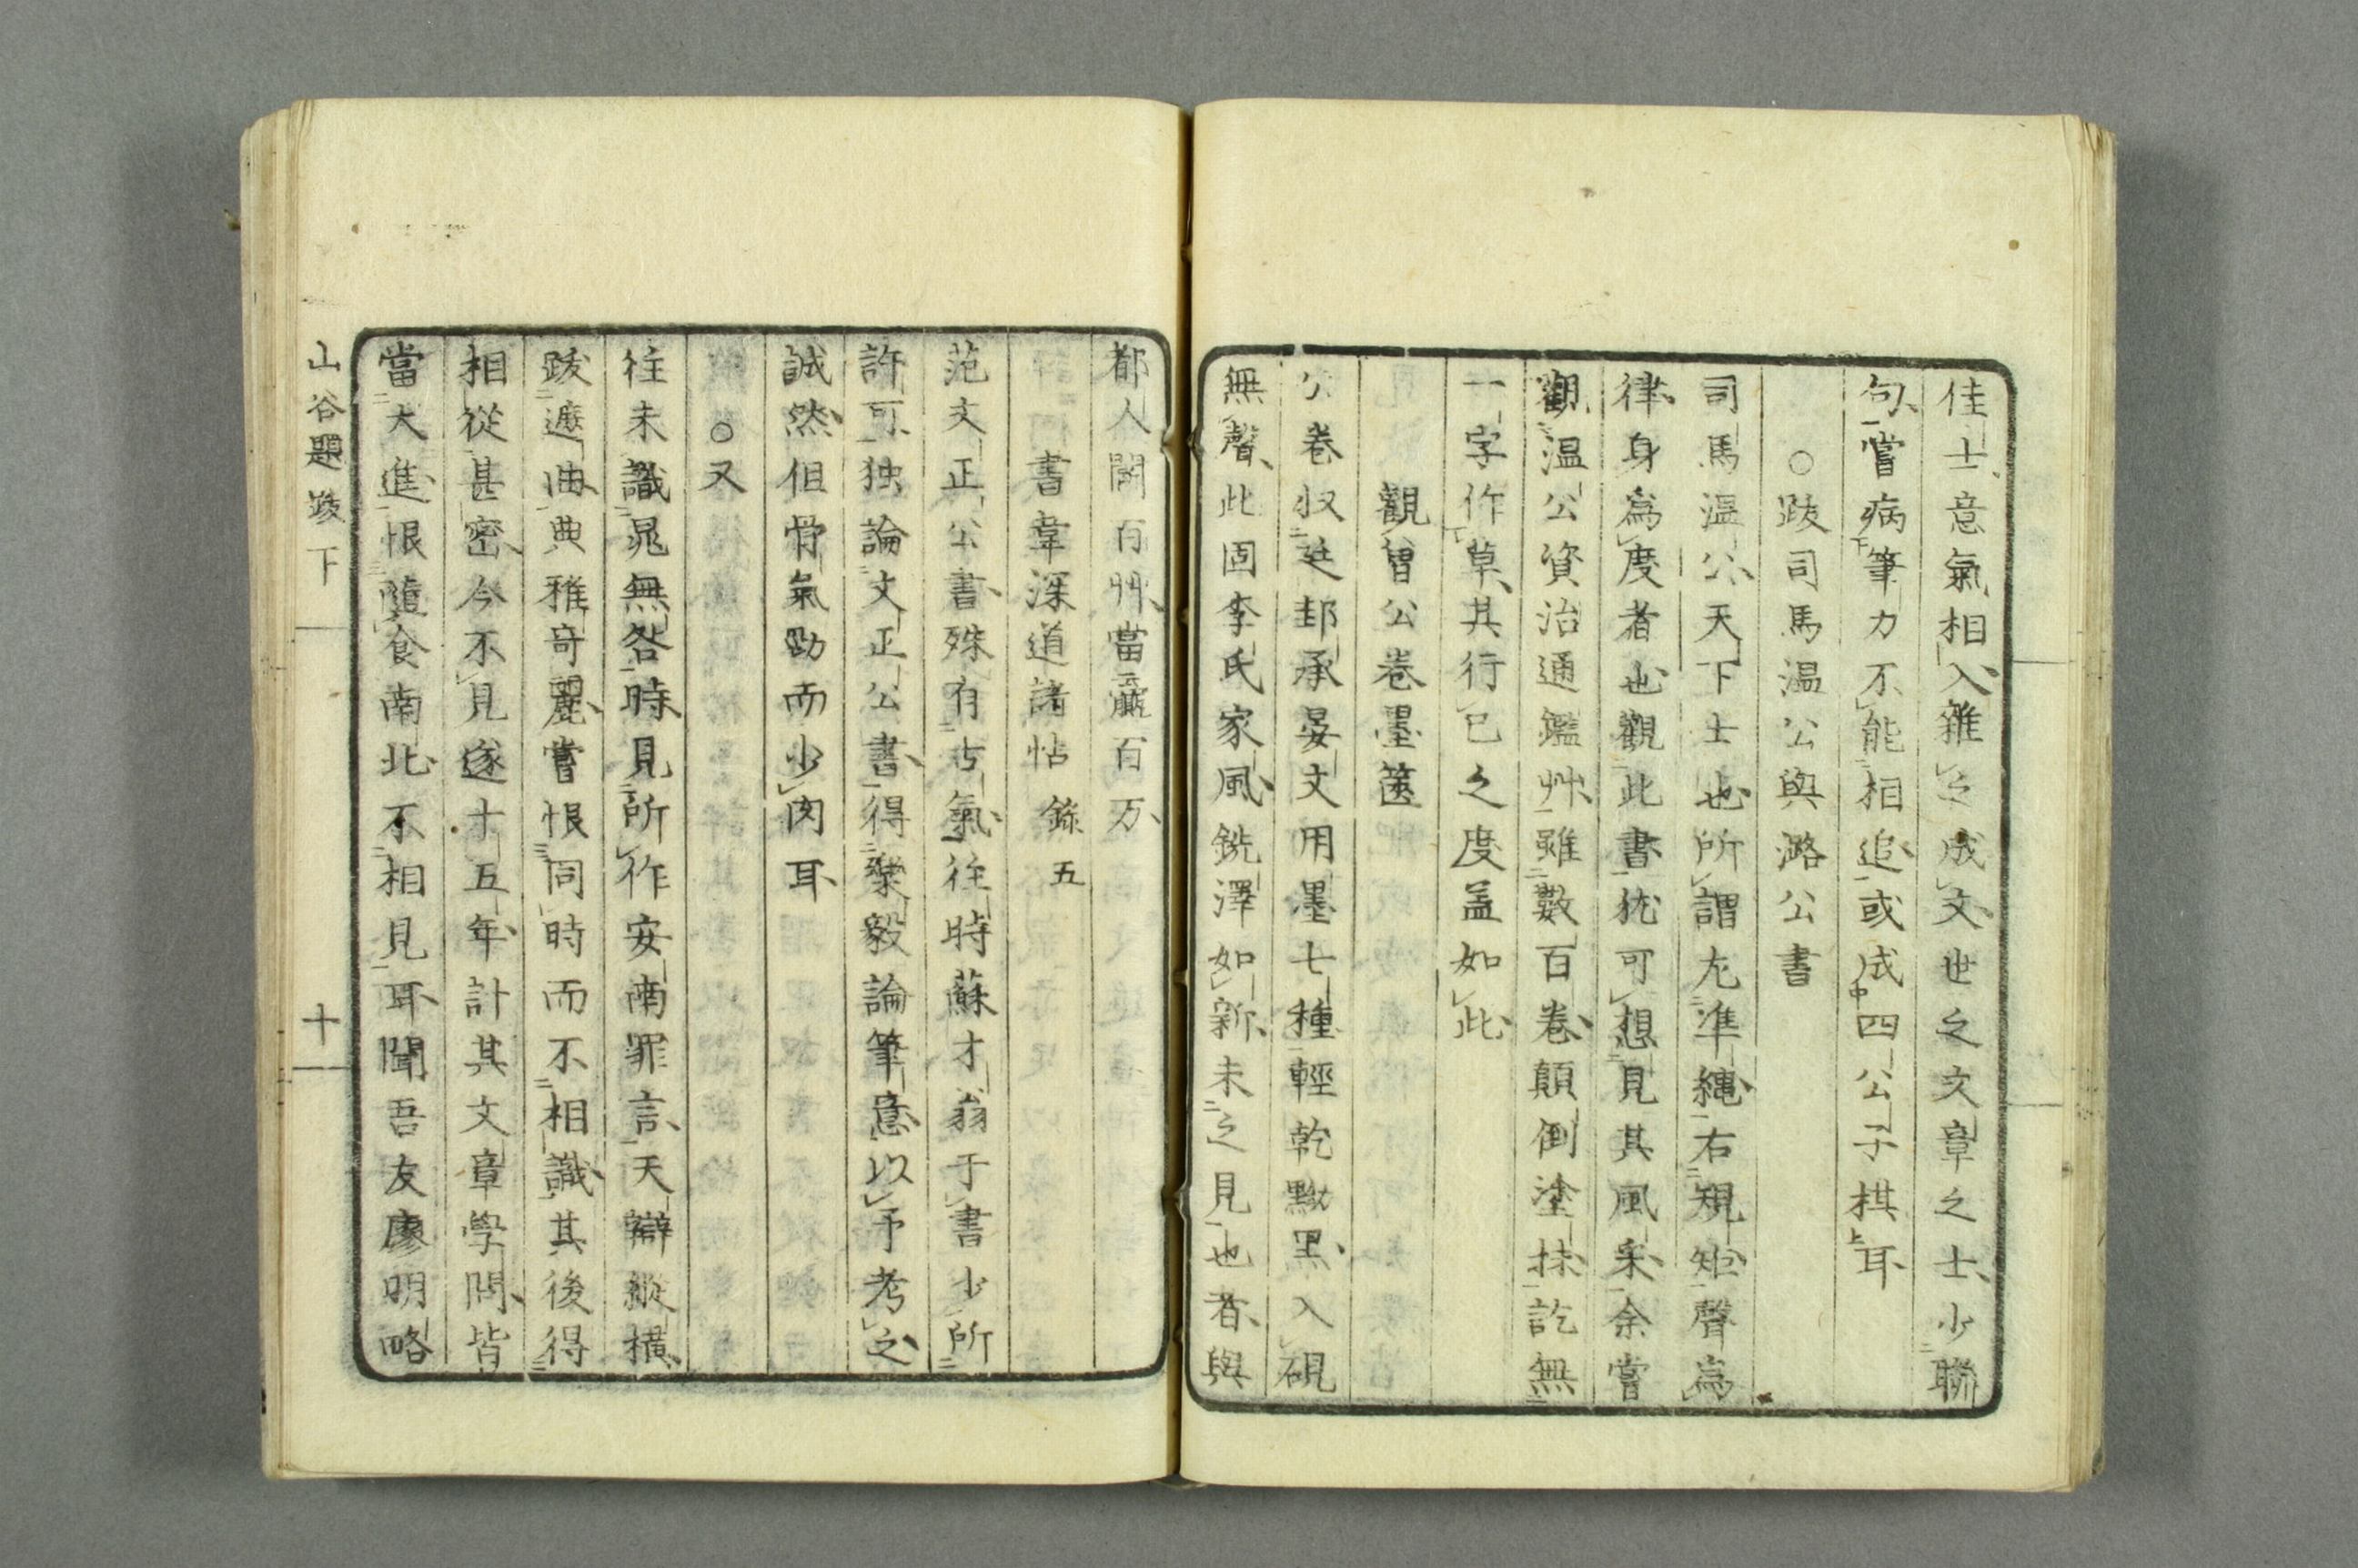 佳士意氣相入雜之成文世之文章之士少聯
句嘗病筆力不能相追或成四公子棋耳
○跋司馬溫公與潞公書
司馬溫公天下士也所謂左準繩右規矩聲為
律身為度者也觀此書猶可想見其風采余嘗
觀溫公資治通鑑艸雖數百卷顛倒塗抹訖無
一字作草其行已之度盖如此
觀曽公卷墨篋
公卷収廷邽承晏文用墨七種輕乾黝黑入硯
無聲此固李氏家風銑澤如新未之見也者與
都人鬪百艸當贏百万
書韋深道諸帖 錄五
范文正公書殊有古氣徃時蘇才翁于書少所
許可独論文正公書得樂毅論筆意以予考之
誠然但骨氣勁而少肉耳
○又
徃未識晁無咎時見所作安南罪言天辯縱橫
跋遮曲典雅奇麗嘗恨同時而不相識其後得
相從甚密今不見遂十五年計其文章學問皆
當大進恨隨食南北不相見耳聞吾友廖明略
山谷題跋下
十一